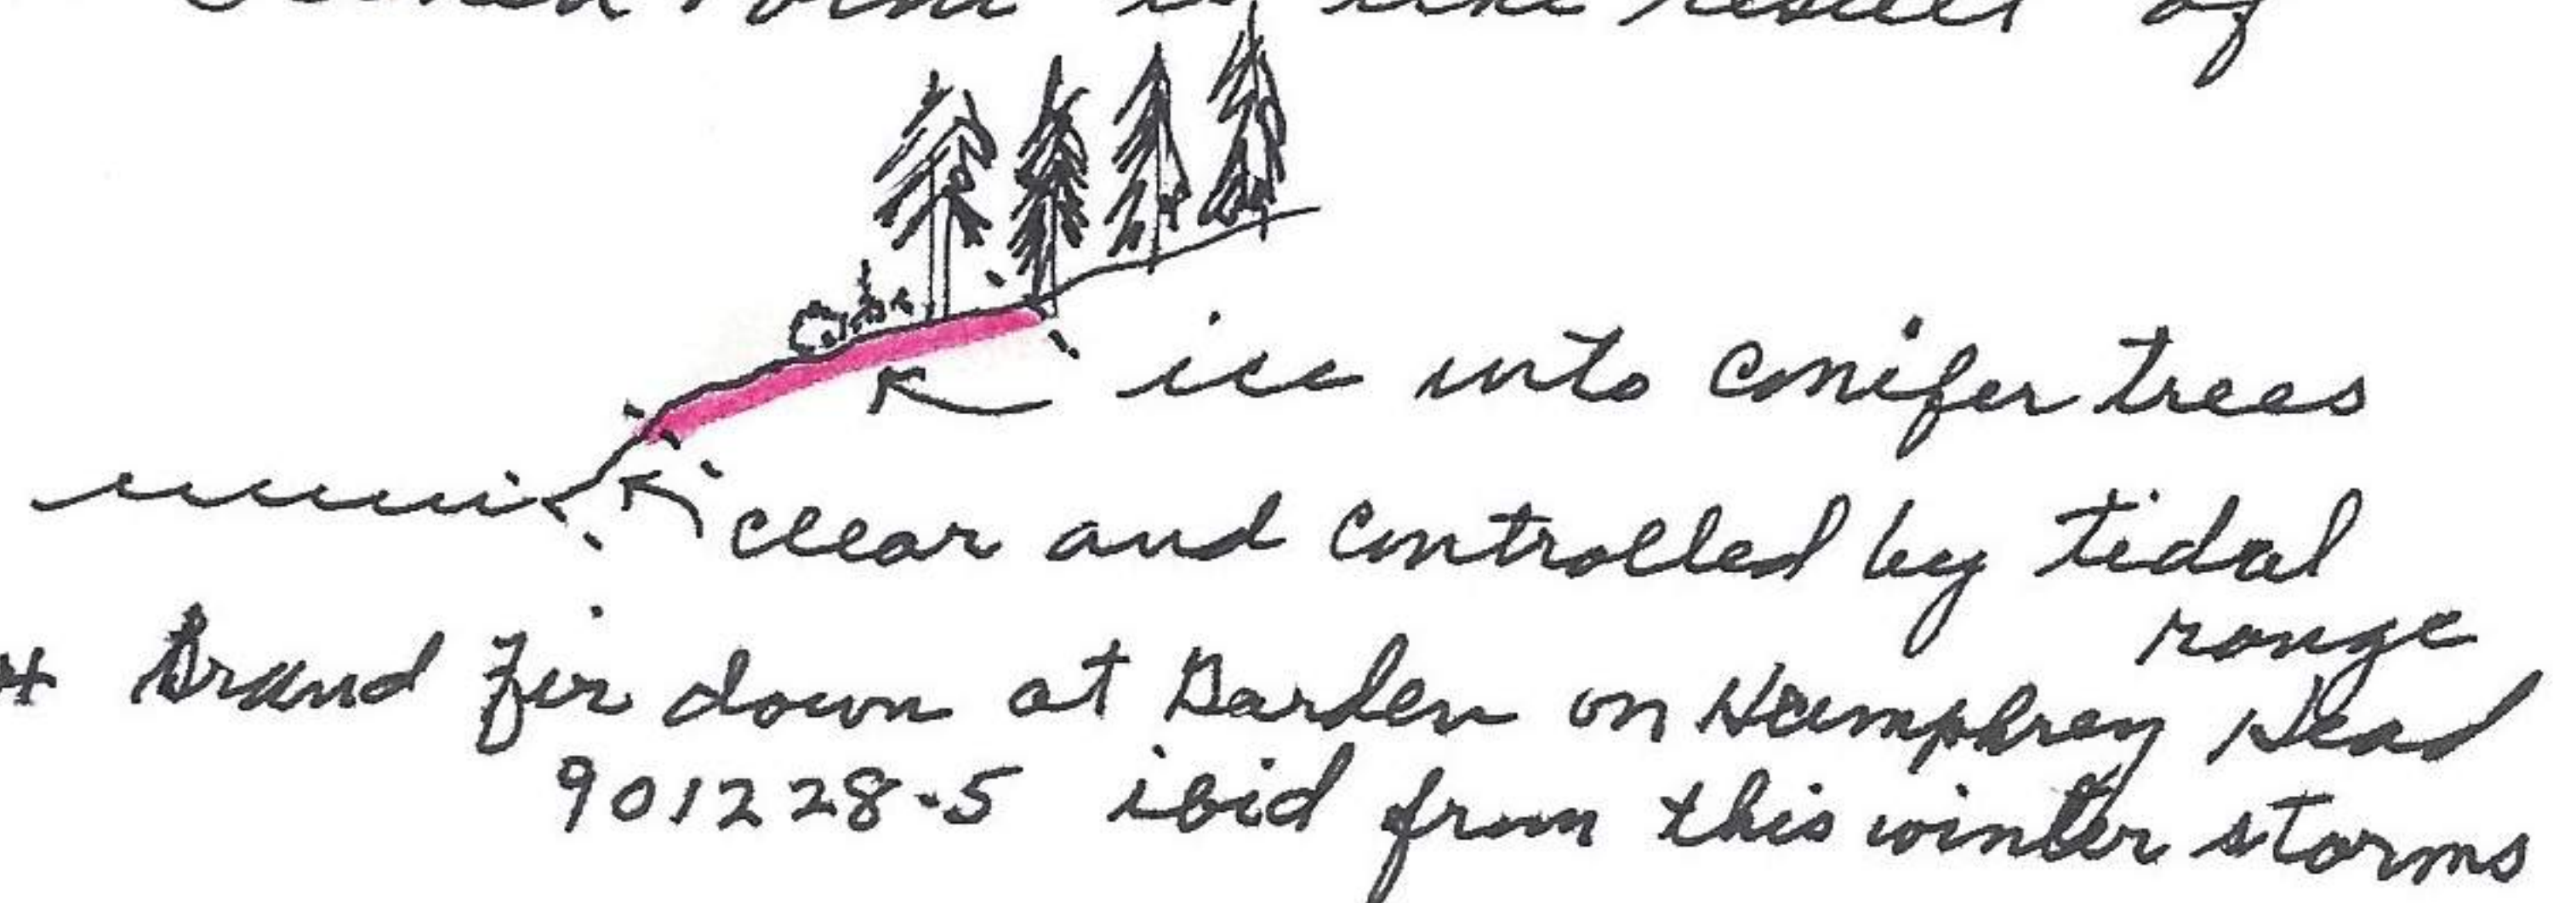 is the result of
ice into conifer trees
clear and controlled by tidal
range
Grand fir down at Garden on Humphrey Head
901228-5 ibid from this winter storms